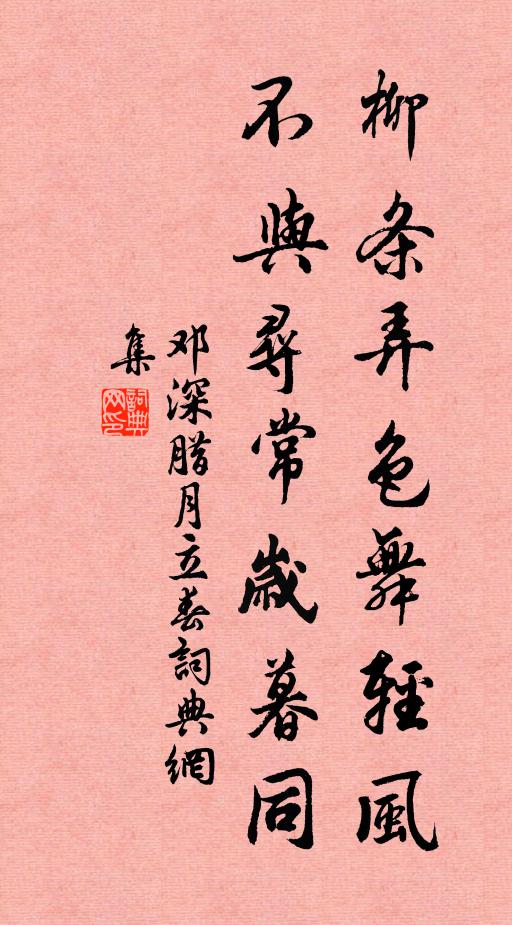 柳条弄色舞輕風
不與尋常歲暮同
邓深腊月立春詞典網
集
詞典网印